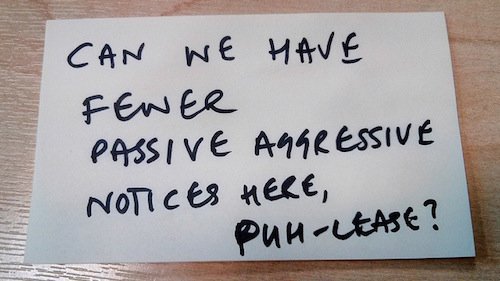 CAN WE HAVE
FEWER
PASSIVE AGGRESSIVE
NOTICES HERE,
PUH-LEASE?